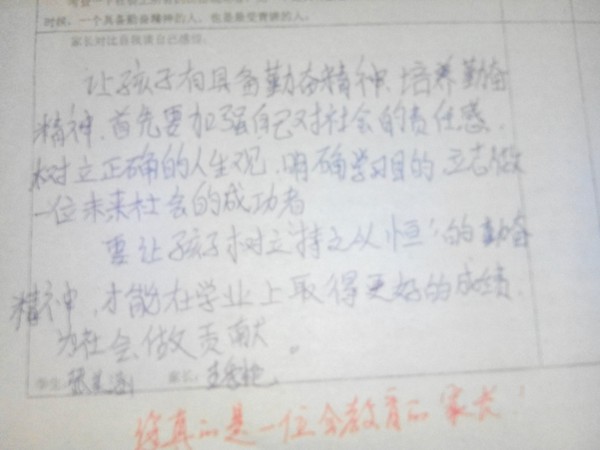 时候，一个具备勤奋精神的人，也是最受青睐的人。
家长对比自我谈自己感悟。
让孩子有具备勤奋精神、培养勤奋
精神，首先要加强自己对社会的责任感，
树立正确的人生观，明确学习目的，立志做
一位未来社会的成功者
要让孩子树立"持之以恒"的勤奋
精神，才能在学业上取得更好的成绩，
为社会做贡献。
学生 家长：
您真的是一位会教育的家长！